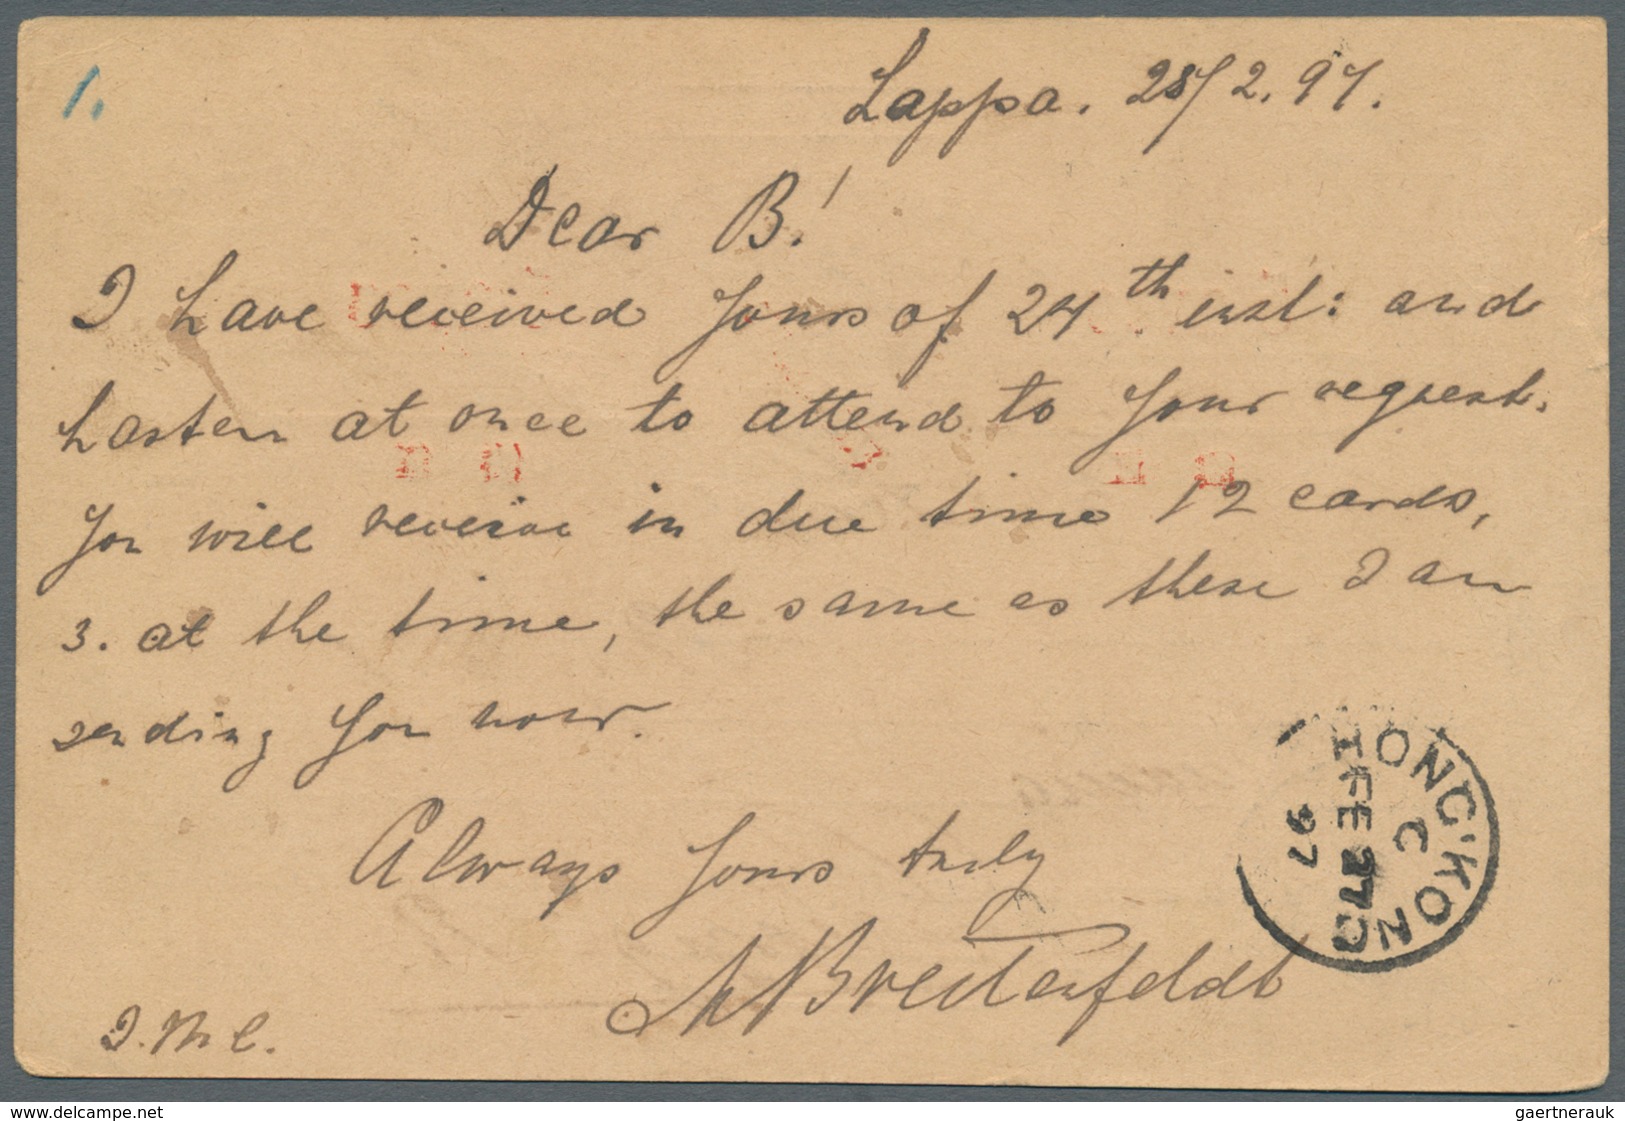 1.
Lappa. 28/2.97.
Dear B!
I have received Yours of 24th inst: and
hasten at once to attend to Your request.
You will receive in due time 12 cards,
3. at the time, the same as these I am
sending You now.
Always Yours truly
Breitenfeldt
I. M C.
ONG KONG
C
FE 27
97
www.delcampe.net
gaertnerauk